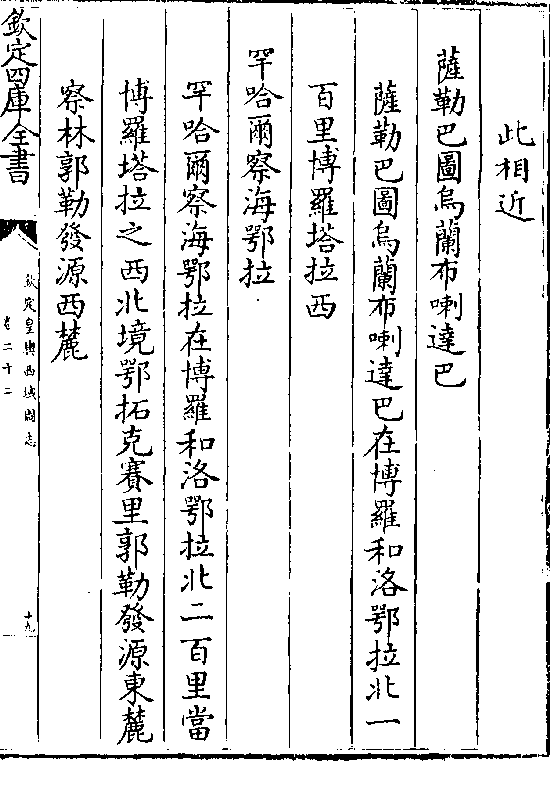 此相近
薩勒巴圖烏蘭布喇達巴
薩勒巴圖烏蘭布喇達巴在博羅和洛鄂拉北一
百里博羅塔拉西
罕哈爾察海鄂拉
罕哈爾察海鄂拉在博羅和洛鄂拉北二百里當
博羅塔拉之西北境鄂拓克賽里郭勒發源東麓
察林郭勒發源西麓
欽定四庫全書
欽定皇輿西域圖志
卷二十二
十九